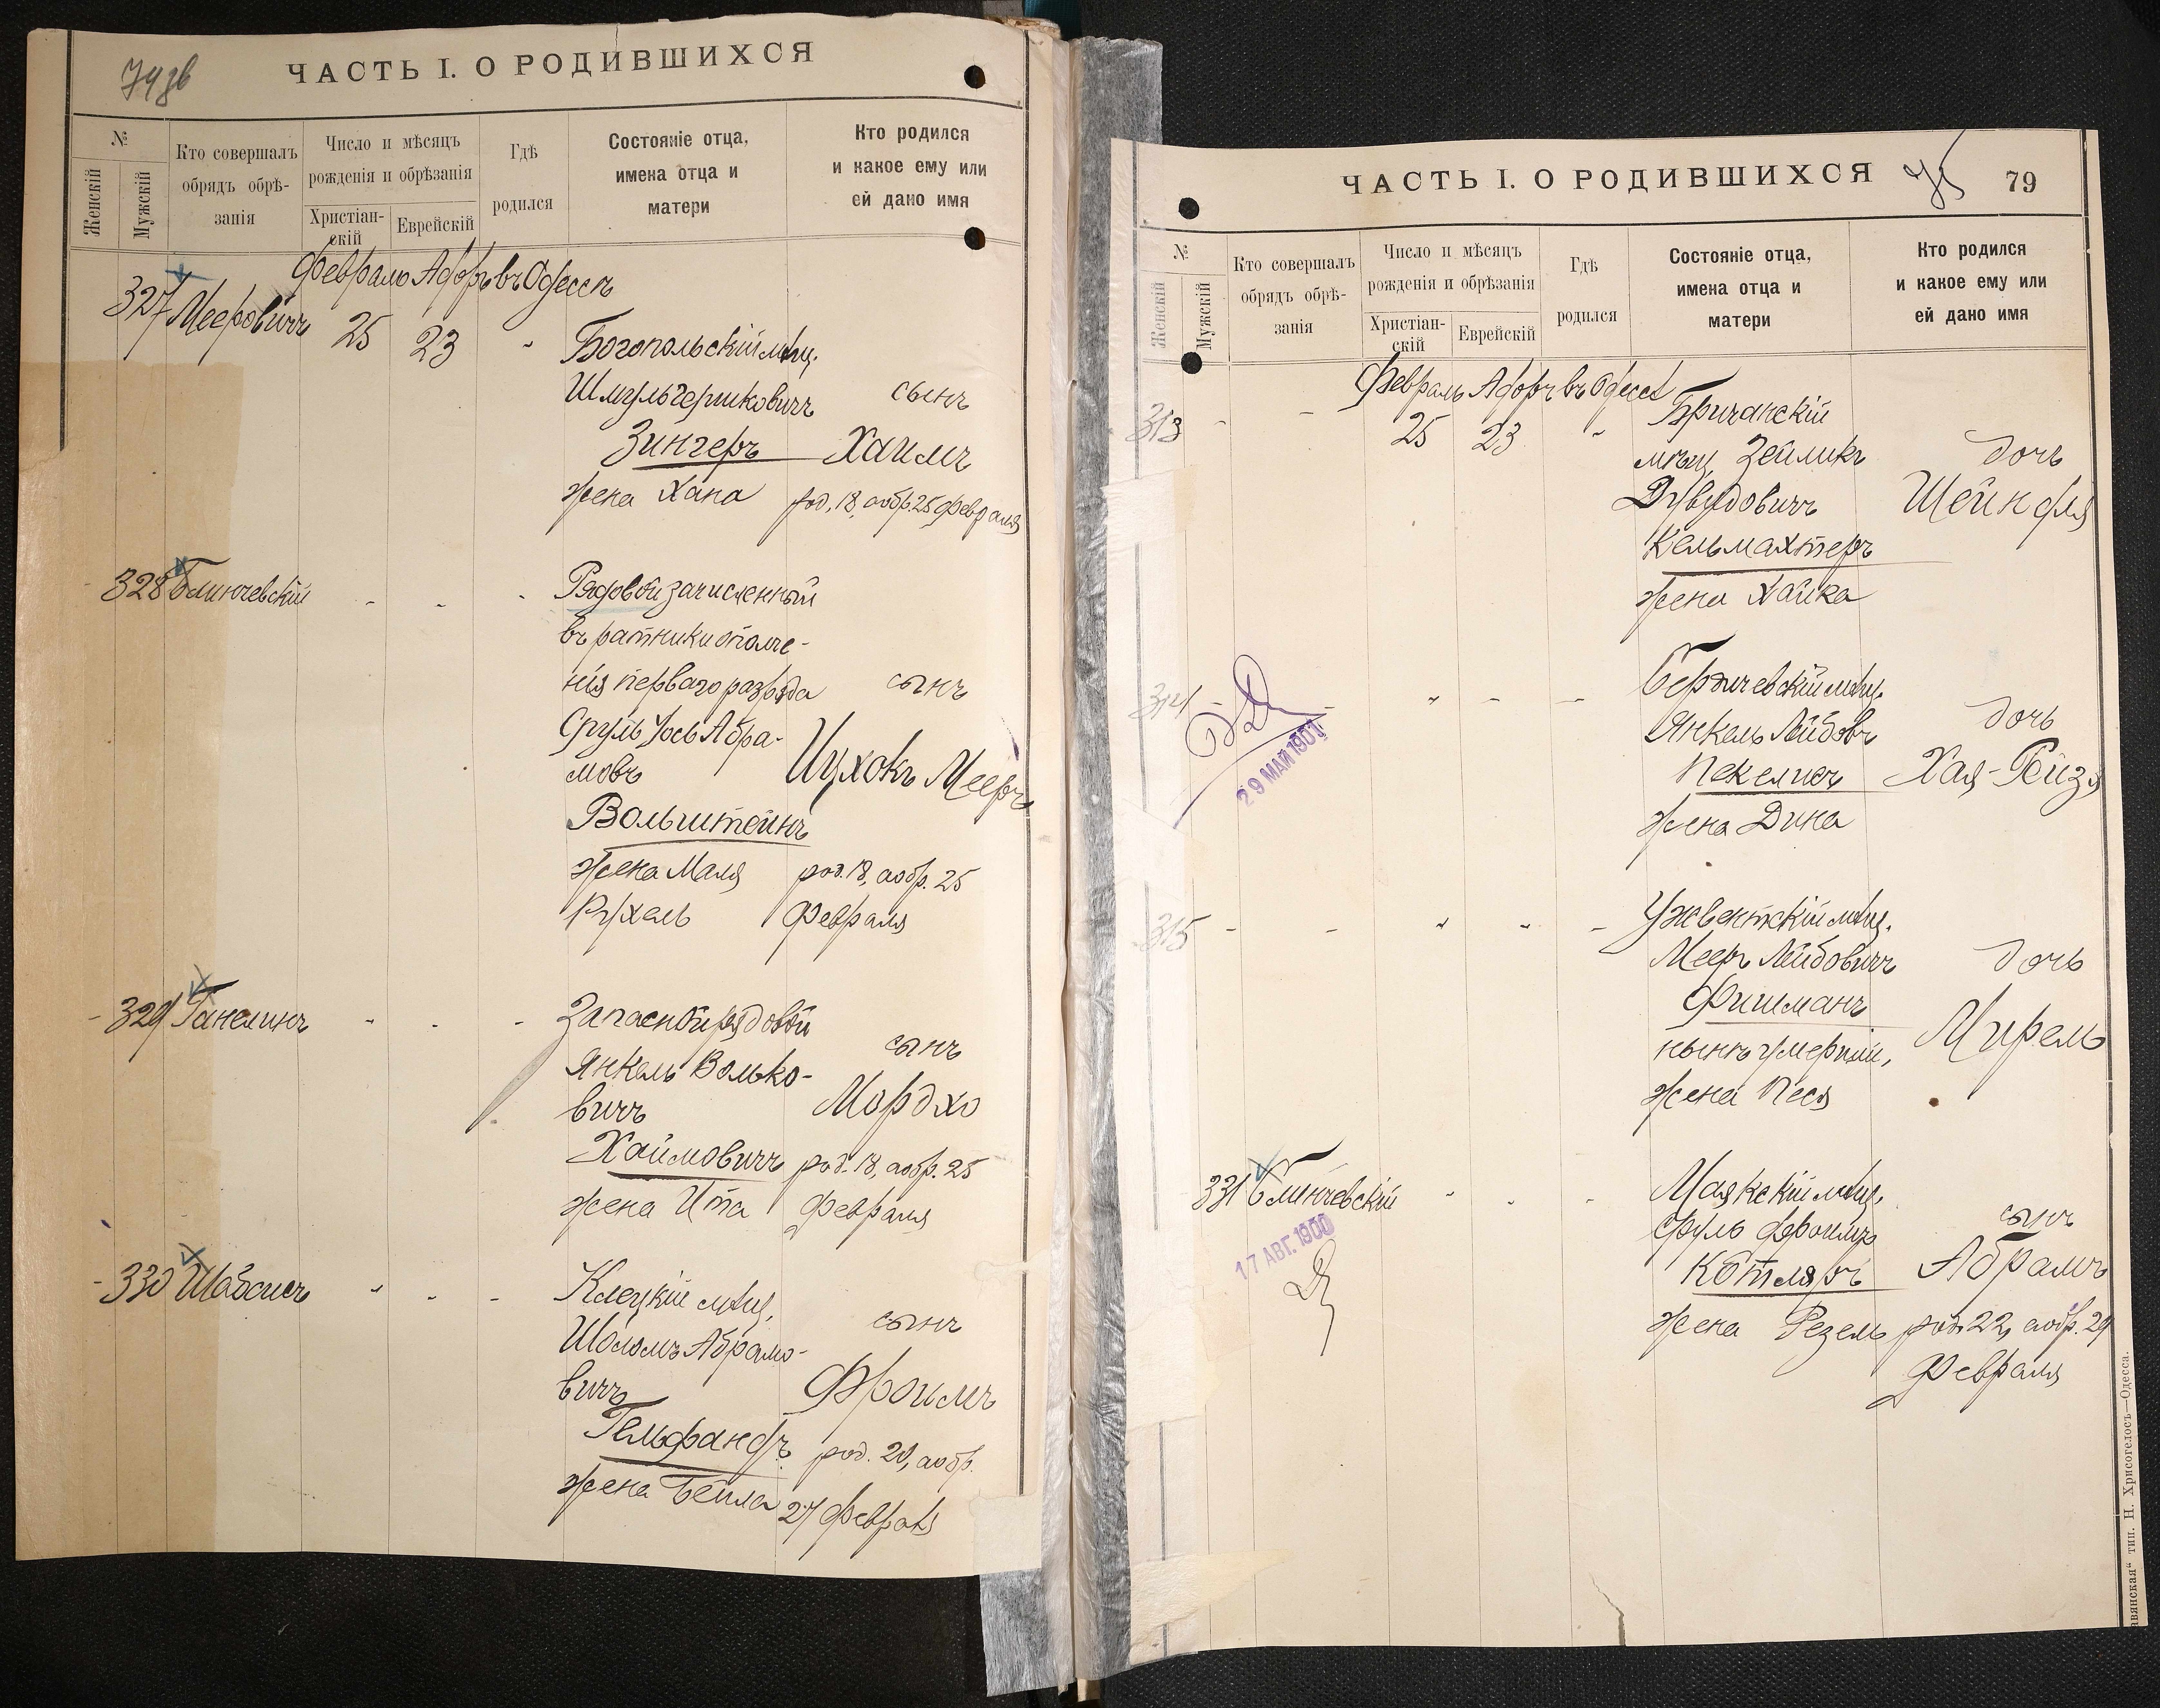 74 об
ЧАСТЬ I. О РОДИВШИХСЯ
№
Женскій
Мужскій
Кто совершалъ
обрядъ обрѣ-
занія
Число и мѣсяцъ
рожденія и обрѣзанія
Христіан-
скій
Еврейскій
Гдѣ
родился
Состояніе отца,
имена отца и
матери
Кто родился
и какое ему или
ей дано имя
Февраль Адоръ въ Одессѣ
327 Мееровичъ 25 23 "
Богопольскій мѣщ.
Шмуль Гершковичъ сынъ
Зингеръ Хаимъ
жена Хана род. 18, а обр. 25 февраля
328 Блинчевскій - - -
Рядовой зачисленный
въ ратники ополче-
нія перваго разряда сынъ
Сруль Іось Абра-
мовъ Ицхокъ Мееръ
Вольштейнъ
жена Маля род. 18, а обр. 25
Рухель февраля
329 Ганелинъ - - -
Запасной рядовой
сынъ
Янкель Волько-
вичъ Мордхо
Хаимовичъ род. 18, а обр. 25
жена Ита февраля
330 Шабсисъ - - -
Клецкій мѣщ.
Шоломъ Абрамо- сынъ
вичъ Фроимъ
Гельфандъ род. 20, а обр.
жена Бейла 27 февраля
ЧАСТЬ I. О РОДИВШИХСЯ
75
79
№
Женскій
Мужскій
Кто совершалъ
обрядъ обрѣ-
занія
Число и мѣсяцъ
рожденія и обрѣзанія
Христіан-
скій
Еврейскій
Гдѣ
родился
Состояніе отца,
имена отца и
матери
Кто родился
и какое ему или
ей дано имя
Февраль Адоръ въ Одессѣ
313 - - 25 23 "
Бричанскій
мѣщ. Зейликъ дочь
Дувидовичъ Шейндля
Кельмахтеръ
жена Хайка
314 - - " - -
Бердичевскій мѣщ.
Янкель Лейбовъ дочь
Пекелисъ Хая-Рейзя
жена Дина
29 МАЙ 1901
315 - - " - -
Ужвентскій мѣщ.
Мееръ Лейбовичъ дочь
Фишманъ
Мирель
нынѣ умершій,
жена Песя
331 Блинчевскій - - -
Маякскій мѣщ.
Сруль Фроимъ сынъ
Котляръ Абрамъ
жена Резель род. 22, а обр. 29
февраля
17 АВГ. 1900
авянская“ тип. Н. Хрисогелосъ—Одесса.